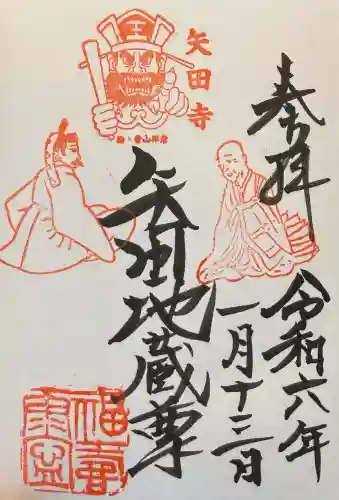 奉拝
令和六年
一月十三日
矢田地蔵尊
矢田寺